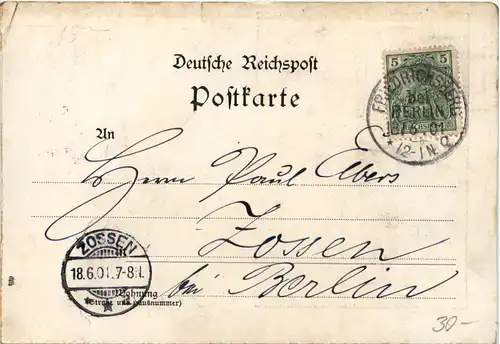 15-
Deutsche Reichspost
Postkarte
5 5
FRIEDRICHSBERG
bei
BERLIN
12-1N.
An
Herrn Paul Elbers
Zossen
bei Berlin
ZOSSEN
18.6.01.7-8N.
Wohnung
(Straße und Hausnummer)
30-